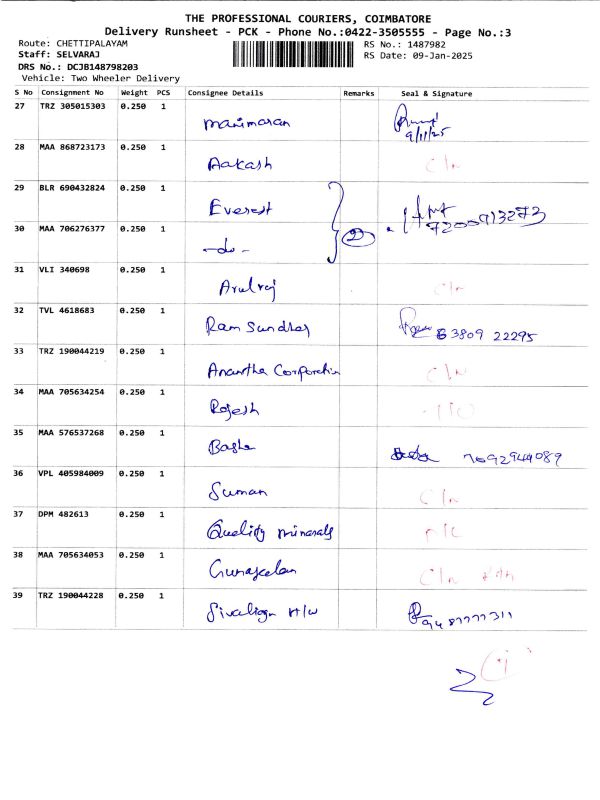 THE PROFESSIONAL COURIERS, COIMBATORE
Delivery Runsheet - PCK - Phone No.:0422-3505555 - Page No.:3
Route: CHETTIPALAYAM RS No.: 1487982
Staff: SELVARAJ RS Date: 09-Jan-2025
DRS No.: DCJB148798203
Vehicle: Two Wheeler Delivery
S No Consignment No Weight PCS Consignee Details Remarks Seal & Signature
27 TRZ 305015303 0.250 1 Manimaran
9/1/25
28 MAA 868723173 0.250 1 Aakash C/n
29 BLR 690432824 0.250 1 Everest
7200913273
30 MAA 706276377 0.250 1 -do- 2
31 VLI 340698 0.250 1 Arulraj C/n
32 TVL 4618683 0.250 1 Ram Sundhar 63809 22295
33 TRZ 190044219 0.250 1 Anantha Corporation C/n
34 MAA 705634254 0.250 1 Rajesh
35 MAA 576537268 0.250 1 Basha
36 VPL 405984009 0.250 1 Suman C/n
37 DPM 482613 0.250 1 Quality minerals
38 MAA 705634053 0.250 1 Gunaseelan C/n
39 TRZ 190044228 0.250 1 H/w